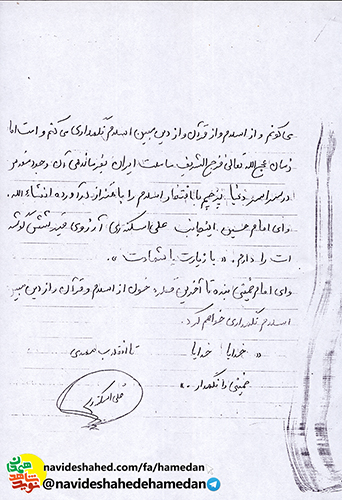 می‌گویم و از اسلام و از قرآن و از دین مبین اسلام نگهداری می‌کنم و است اما
زمان عجل الله تعالی فرج الشریف با ملت ایران به فرماندهی آن
در سراسر دنیا پرچم با افتخار اسلام را باهتزاز درآورده انشاء الله.
وای امام حسین اینجانب علی اسکندری آرزوی قبر شش گوشه
ات را دارم. « یا زیارت یا شهادت ».
وای امام خمینی بنده تا آخرین قطره خون از اسلام و قرآن و از دین مبین
اسلام نگهداری خواهم کرد.
« خدایا خدایا تا انقلاب مهدی
خمینی را نگهدار. »
علی اسکندری
نوید شاهد همدان
navideshahed.com/fa/hamedan
@navideshahedehamedan